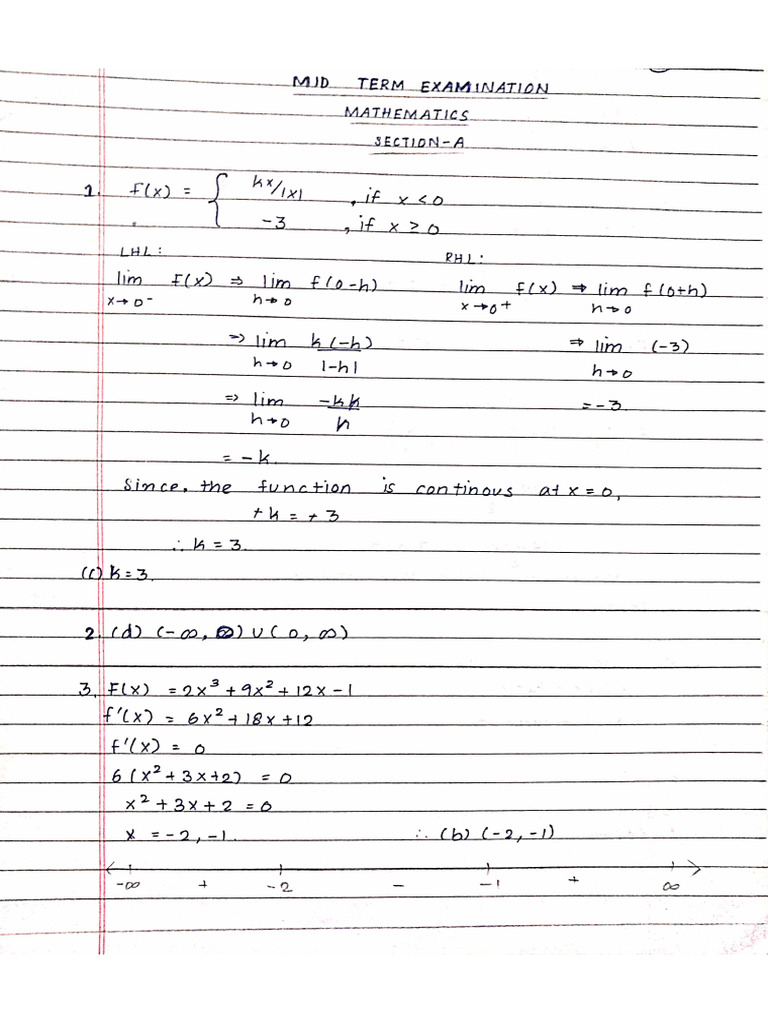 MID TERM EXAMINATION
MATHEMATICS
SECTION-A
1. f(x) = { kx/|x| , if x < 0
-3 , if x ≥ 0
LHL: RHL:
lim x→0⁻ f(x) ⇒ lim h→0 f(0-h) lim x→0+ f(x) ⇒ lim h→0 f(0+h)
⇒ lim h→0 k(-h)/|-h| ⇒ lim h→0 (-3)
⇒ lim h→0 -kh/h = -3
= -k.
Since, the function is continous at x = 0,
+k = +3
∴ k = 3.
(c) k = 3.
2. (d) (-∞, ) ∪ (0, ∞)
3. F(x) = 2x³ + 9x² + 12x - 1
f'(x) = 6x² + 18x + 12
f'(x) = 0
6(x² + 3x + 2) = 0
x² + 3x + 2 = 0
x = -2, -1. ∴ (b) (-2, -1)
-∞ + -2 - -1 + ∞